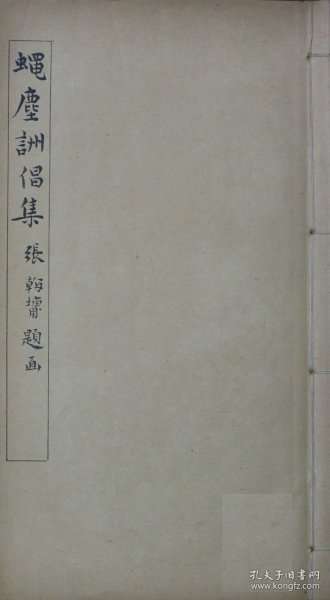 蝇塵詶倡集 張翰墉題面
孔夫子旧书网
www.kongfz.com